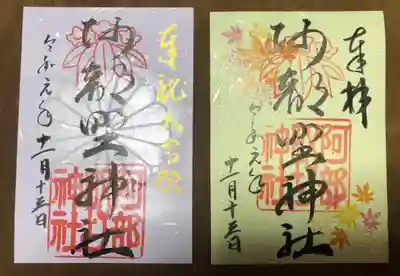 奉祝大嘗祭
阿部野神社
令和元年
十一月十五日
阿部
野神社
奉拝
阿部野神社
令和元年
十一月十五日
阿部
野神社